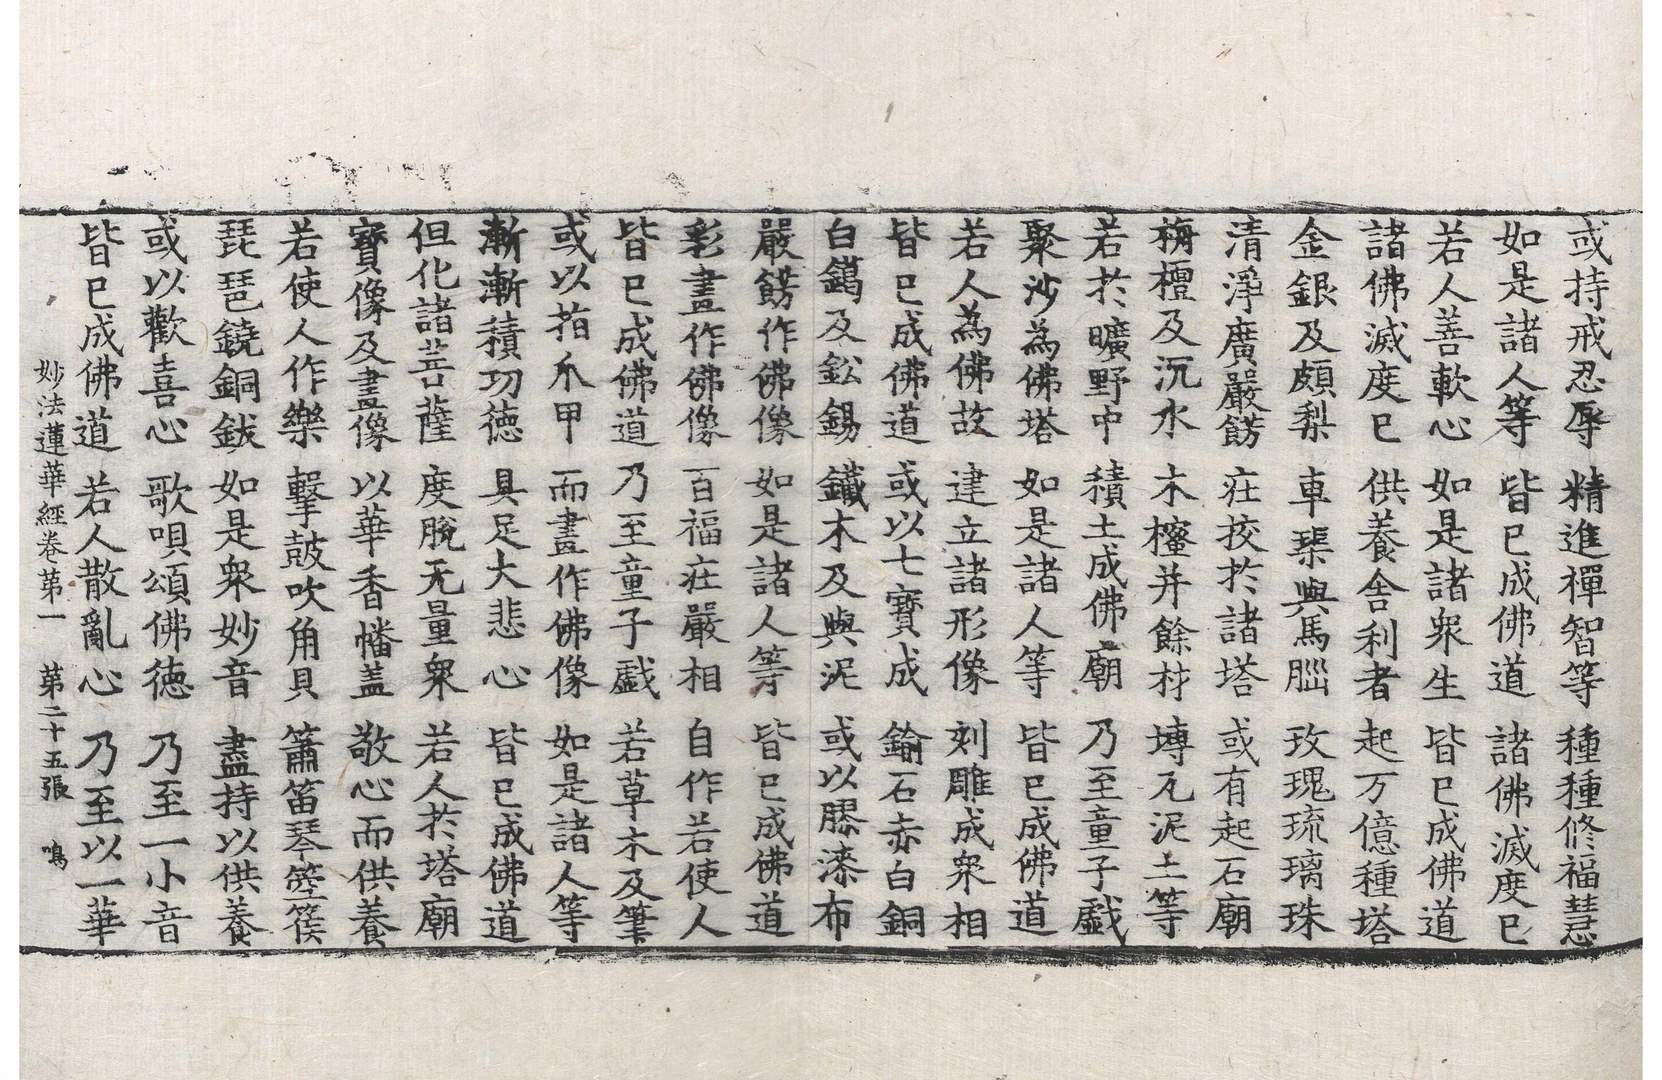 或持戒忍辱 精進禪智等 種種修福慧
如是諸人等 皆已成佛道 諸佛滅度已
若人善軟心 如是諸衆生 皆已成佛道
諸佛滅度已 供養舍利者 起万億種塔
金銀及頗梨 車𤦲與馬腦 玫瑰琉璃珠
清淨廣嚴餝 莊挍於諸塔 或有起石廟
栴檀及沉水 木櫁并餘材 塼瓦泥土等
若於曠野中 積土成佛廟 乃至童子戲
聚沙為佛塔 如是諸人等 皆已成佛道
若人為佛故 建立諸形像 刻雕成衆相
皆已成佛道 或以七寶成 鍮石赤白銅
白鑞及鈆錫 鐵木及與泥 或以膠漆布
嚴餝作佛像 如是諸人等 皆已成佛道
彩畫作佛像 百福莊嚴相 自作若使人
皆已成佛道 乃至童子戲 若草木及筆
或以指爪甲 而畫作佛像 如是諸人等
漸漸積功德 具足大悲心 皆已成佛道
但化諸菩薩 度脫无量衆 若人於塔廟
寶像及畫像 以華香幡盖 敬心而供養
若使人作樂 擊鼓吹角貝 簫笛琴箜篌
琵琶鐃銅鈸 如是衆妙音 盡持以供養
或以歡喜心 歌唄頌佛德 乃至一小音
皆已成佛道 若人散亂心 乃至以一華
妙法蓮華經卷第一 第二十五張 鳴